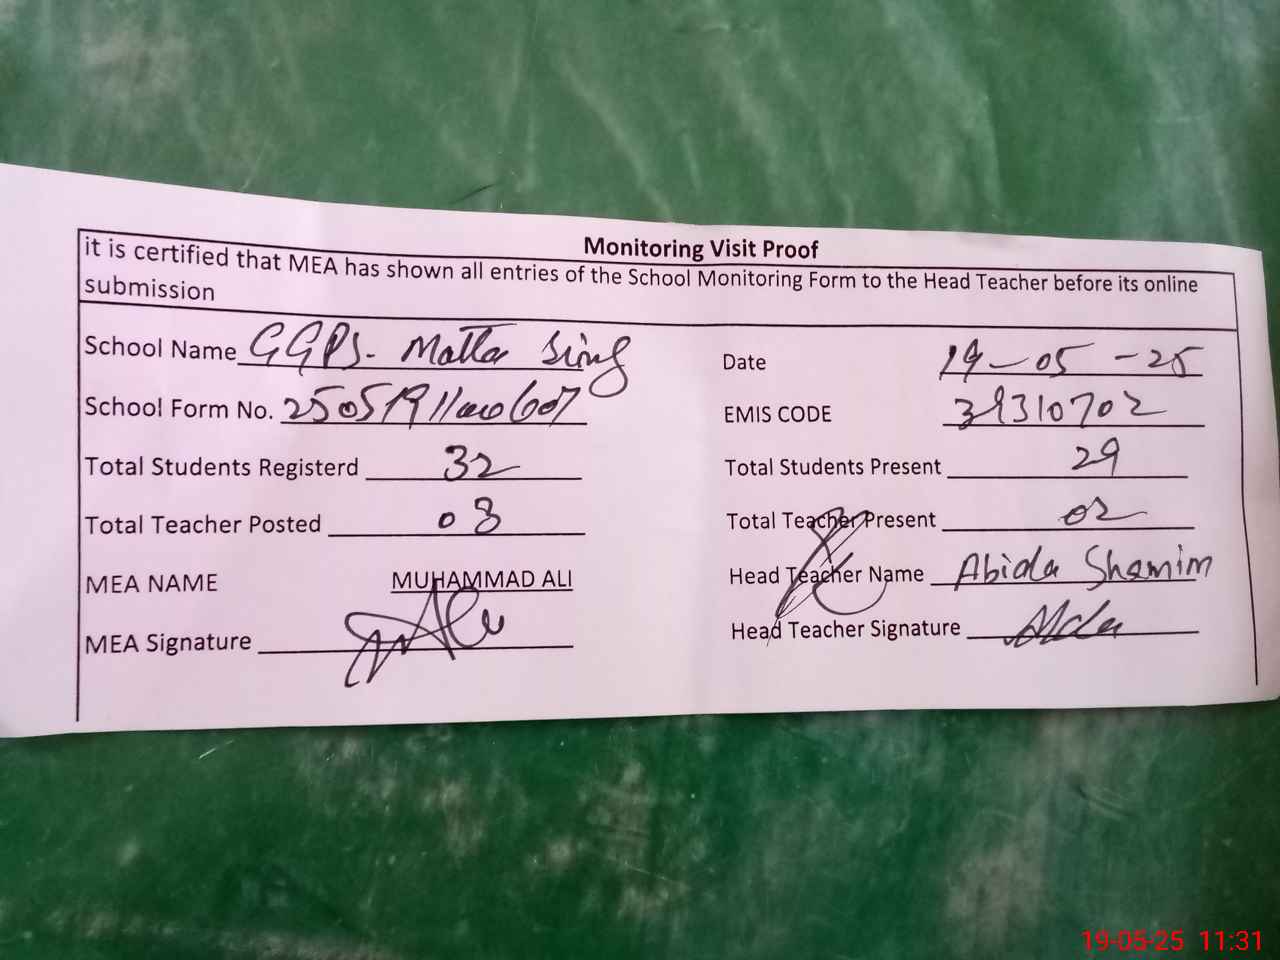 Monitoring Visit Proof
it is certified that MEA has shown all entries of the School Monitoring Form to the Head Teacher before its online
submission
School Name GGPS. Matta Sing
Date 19-05-25
School Form No.
EMIS CODE 39310702
Total Students Registerd 32
Total Students Present 29
Total Teacher Posted 03
Total Teacher Present 02
MEA NAME MUHAMMAD ALI
Head Teacher Name Abida Shamim
MEA Signature
Head Teacher Signature
19-05-25 11:31